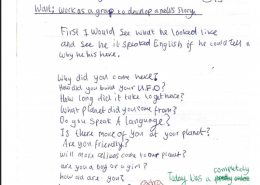 Walt: Work as a group to develop a news story.
First I would see what he looked like
and see he it speaked English if he could tell
why he his here.
Why did you come here?
How did you build your U.F.O?
How long did it take to get here?
What planet did you come from?
Do you speak a language?
Is there more of you at your planet?
Are you friendly?
Will more aliens come to our planet?
are you a boy or a girl?
how old are you?
completely
Today was a